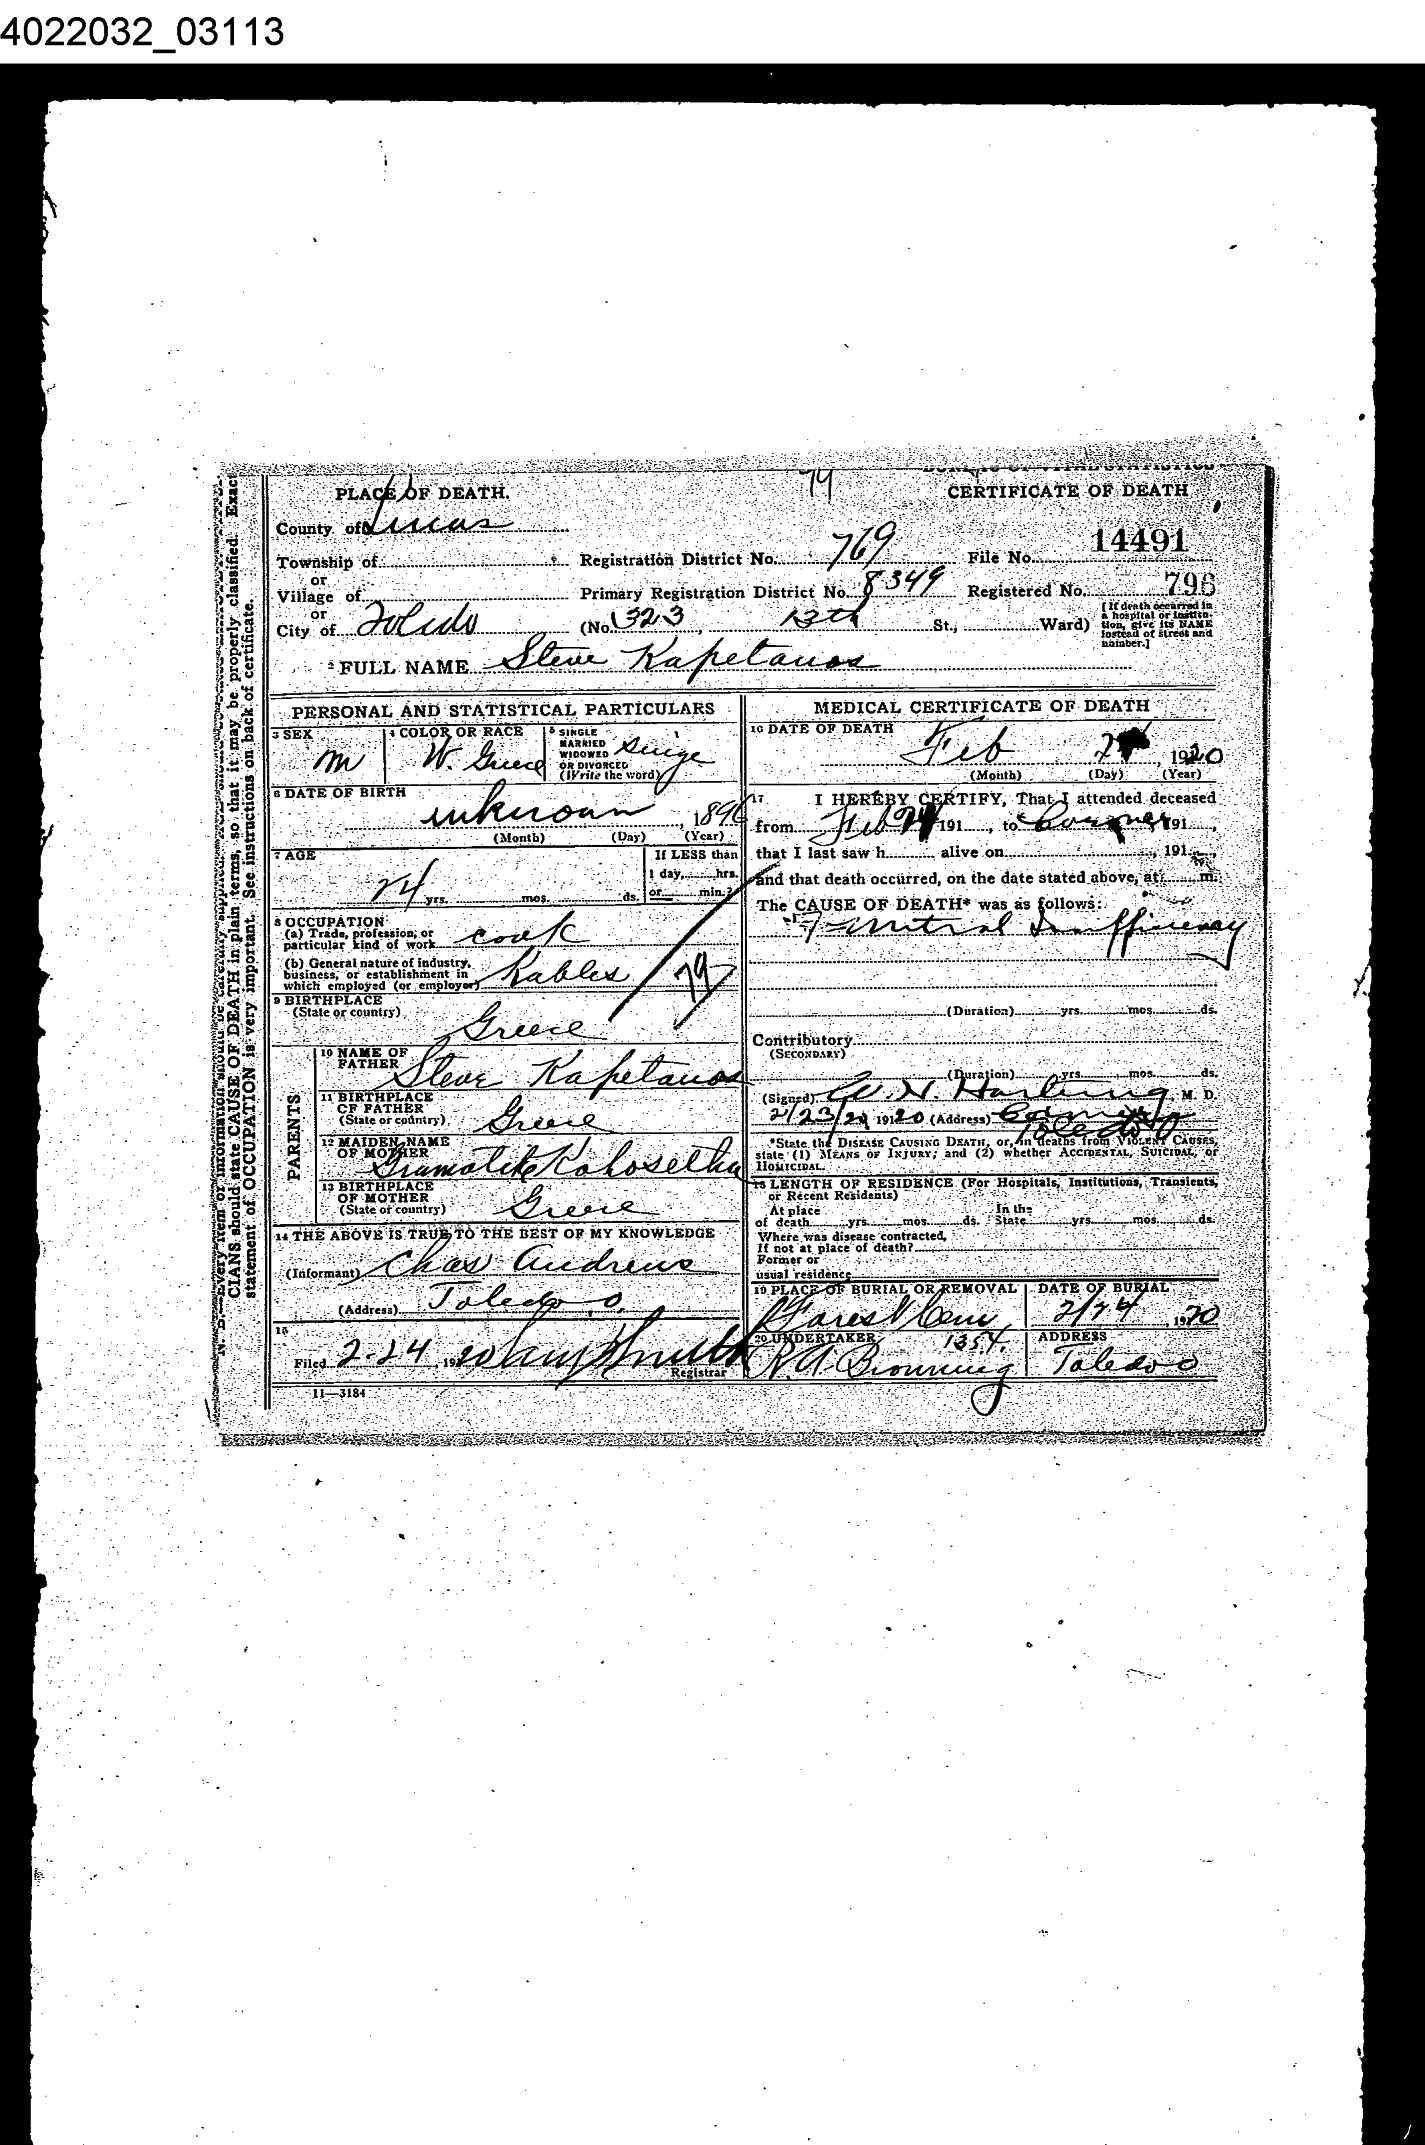 4022032_03113
PLACE OF DEATH.
79
CERTIFICATE OF DEATH
County of Lucas
14491
Township of
Registration District No. 769
File No.
or
Village of
Primary Registration District No. 8349
Registered No. 796
or
City of Toledo
(No. 323, 13th St., Ward)
[If death occurred in
a hospital or institu-
tion, give its NAME
instead of street and
number.]
2 FULL NAME Steve Kapetanos
PERSONAL AND STATISTICAL PARTICULARS
3 SEX
M
4 COLOR OR RACE
W. Greece
5 SINGLE
MARRIED
WIDOWED
OR DIVORCED
(Write the word)
6 DATE OF BIRTH
unknown, 1896
(Month) (Day) (Year)
7 AGE
24 yrs. mos. ds.
If LESS than
1 day, hrs.
or min.?
8 OCCUPATION
(a) Trade, profession, or
particular kind of work cook
(b) General nature of industry,
business, or establishment in
which employed (or employer) Kables
79
9 BIRTHPLACE
(State or country)
Greece
PARENTS
10 NAME OF
FATHER
Steve Kapetanos
11 BIRTHPLACE
OF FATHER
(State or country)
Greece
12 MAIDEN NAME
OF MOTHER
13 BIRTHPLACE
OF MOTHER
(State or country)
Greece
14 THE ABOVE IS TRUE TO THE BEST OF MY KNOWLEDGE
(Informant) Chas Andrews
(Address) Toledo, O.
15
Filed 2-24, 1920
Registrar
11—3184
MEDICAL CERTIFICATE OF DEATH
16 DATE OF DEATH
Feb 1920
(Month) (Day) (Year)
17 I HEREBY CERTIFY, That I attended deceased
from Feb 191, to Coroner, 191,
that I last saw h alive on , 191,
and that death occurred, on the date stated above, at m.
The CAUSE OF DEATH* was as follows:
Mitral Insufficiency
(Duration) yrs. mos. ds.
Contributory
(SECONDARY)
(Duration) yrs. mos. ds.
(Signed) M. D.
2/23/20 1920 (Address)
Toledo O
*State the DISEASE CAUSING DEATH, or, in deaths from VIOLENT CAUSES,
state (1) MEANS OF INJURY; and (2) whether ACCIDENTAL, SUICIDAL, or
HOMICIDAL.
18 LENGTH OF RESIDENCE (For Hospitals, Institutions, Transients,
or Recent Residents)
At place In the
of death yrs. mos. ds. State yrs. mos. ds.
Where was disease contracted,
If not at place of death?
Former or
usual residence
19 PLACE OF BURIAL OR REMOVAL
Forest Cem
DATE OF BURIAL
2/24, 1920
20 UNDERTAKER 1354.
R. A. Browning
ADDRESS
Toledo O
N. B.—Every item of information should be carefully supplied.
CIANS should state CAUSE OF DEATH in plain terms, so that it may be properly classified. Exact
statement of OCCUPATION is very important. See instructions on back of certificate.